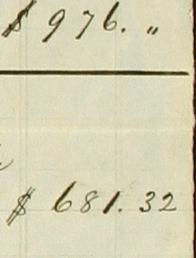 $ 976. "
$ 681.32